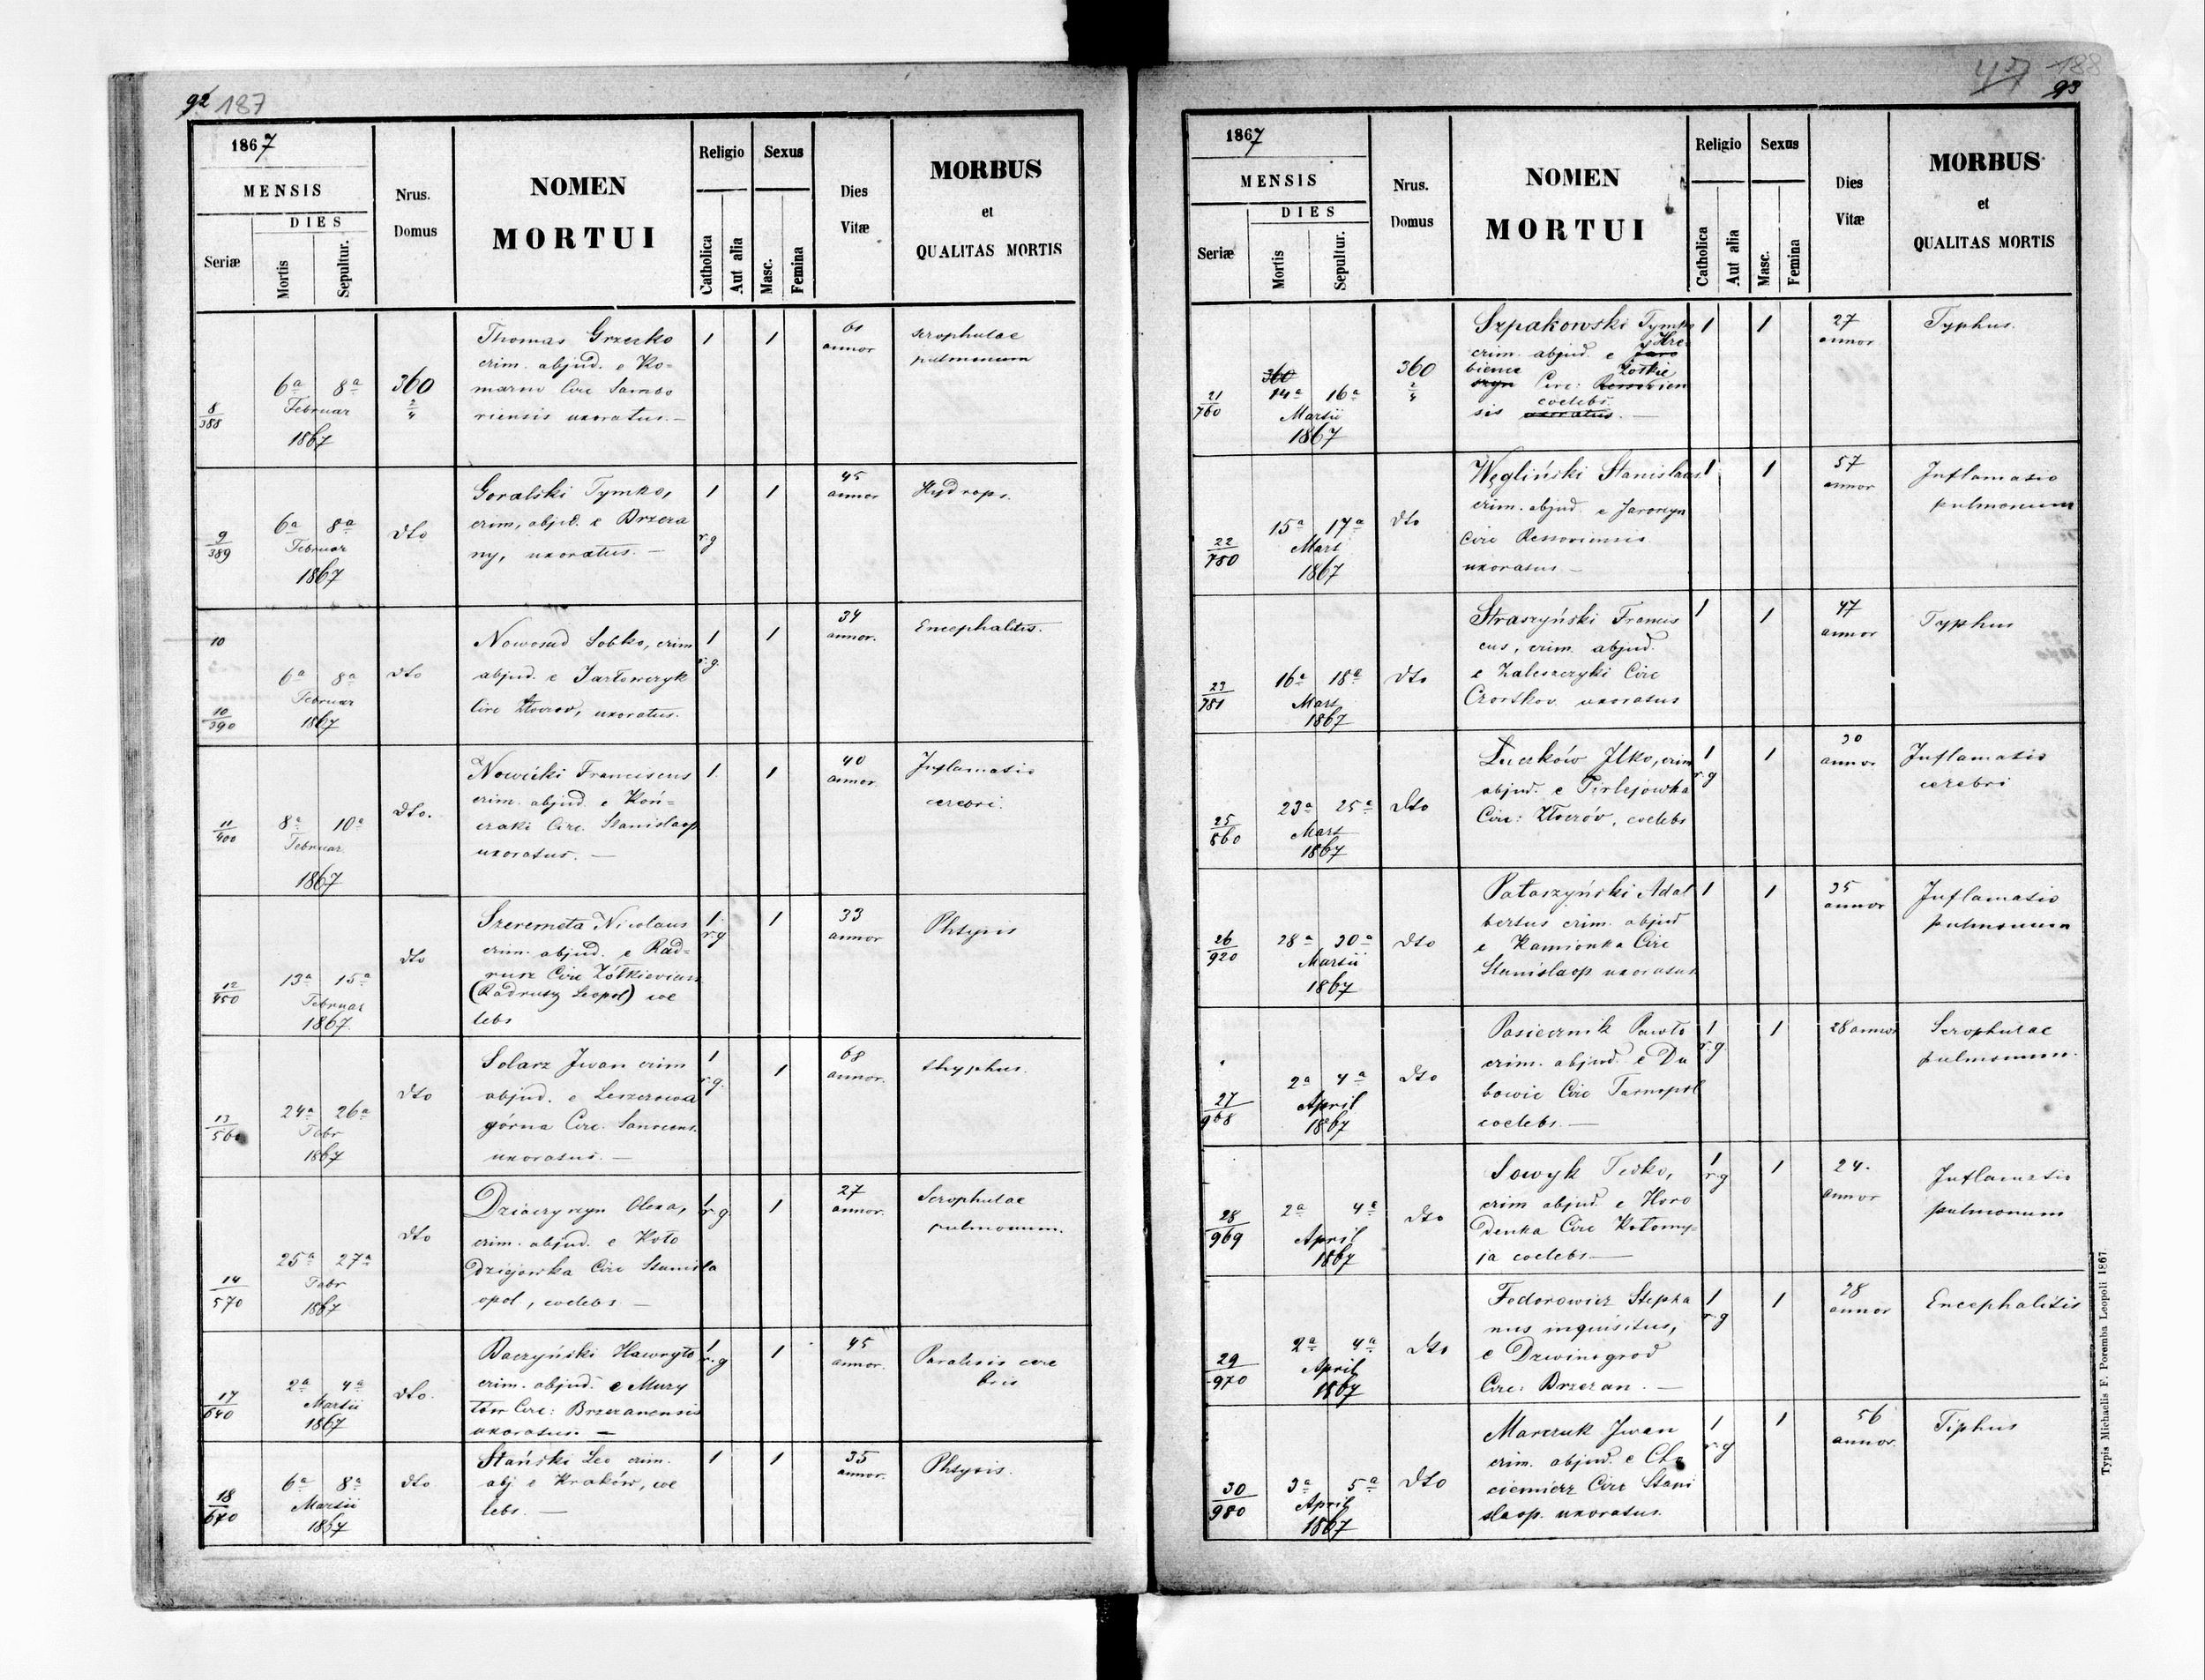 92 187
1867
MENSIS
DIES
Seriæ
Mortis
Sepultur.
Nrus.
Domus
NOMEN
MORTUI
Religio
Catholica
Aut alia
Sexus
Masc.
Femina
Dies
Vitæ
MORBUS
et
QUALITAS MORTIS
8/388
6ª 8ª
Februar
1867
360
2/4
Thomas Grzesko
crim. abjud. e Ko-
marno Circ Sambo
riensis uxoratus.—
1
1
61
annor
scrophulae
pulmonum
9/389
6ª 8ª
Februar
1867
dto
Goralski Tymko,
crim, abjud. e Brzeza
ny, uxoratus. —
1
r.g
1
45
annor
Hydrops.
10
10/390
6ª 8ª
Februar
1867
dto
Nowosad Sobko, crim
abjud. e Jasłowczyk
Circ Złoczov, uxoratus.
1
r.g.
1
34
annor.
Encephalitis.
11/400
8ª 10ª
Februar
1867
dto.
Nowicki Franciscus
crim. abjud. e Koń-
czaki Circ. Stanislaop
uxoratus. —
1.
1
40
annor
Inflamatio
cerebri.
12/450
13ª 15ª
Februar
1867
dto
Szeremeta Nicolaus
crim. abjud. e Rad-
rusz Circ Żółkieviens
(Radrusz Leopol) coe
lebs
1
r.g
1
33
annor
Phtysis
13/560
24ª 26ª
Febr
1867
dto
Solarz Jwan crim
abjud. e Leszczowa
górna Circ. Sanocens.
uxoratus. —
1
r.g.
1
68
annor.
thyphus.
14/570
25ª 27ª
Febr
1867
dto
Olexa,
crim. abjud. e Koło
dziejowka Circ Stanisla
opol, coelebs —
1
r.g
1
27
annor.
Scrophulae
pulmonum.
17/640
2ª 4ª
Martii
1867
dto.
Baczyński Hawryło
crim. abjud. e Muzy
łów Circ: Brzezanensis
uxoratus. —
1
r.g
1
45
annor.
Paralisis cere
bris
18/670
6ª 8ª
Martii
1867
dto
Stański Leo crim.
abj. e Kraków, coe
lebs. —
1
1
35
annor.
Phtysis.
188
93
1867
MENSIS
DIES
Seriæ
Mortis
Sepultur.
Nrus.
Domus
NOMEN
MORTUI
Religio
Catholica
Aut alia
Sexus
Masc.
Femina
Dies
Vitæ
MORBUS
et
QUALITAS MORTIS
21/760
360
14ª 16ª
Martii
1867
360
2/4
Szpakowski Tymko
crim. abjud. e Hre
bience Żołkie
Circ:
coelebs.
sis uxoratus. —
1
1
27
annor
Typhus.
22/780
15ª 17ª
Mart
1867
dto
Węgliński Stanislaus
crim. abjud. e Jaroczyn
Circ Ressoviensis
uxoratus —
1
1
57
annor
Inflamatio
pulmonum
23/781
16ª 18ª
Mart
1867
dto
Straszyński Francis
cus, crim. abjud.
e Zaleszczyki Circ
Czortkov uxoratus
1
1
47
annor
Typhus
25/860
23ª 25ª
Mart
1867
dto
Łuczków Ilko, crim
abjud. e Firlejówka
Circ: Złoczóv, coelebs
1
r.g
1
30
annor
Inflamatio
cerebri
26/920
28ª 30ª
Martii
1867
dto
Pataszyński Adal
bertus crim. abjud
e Kamionka Circ
Stanislaop uxoratus
1
1
35
annor
Inflamatio
pulmonum
27/968
2ª 4ª
April
1867
dto
Pasiecznik Pawło
crim. abjud. e Du
bowic Circ Tarnopol
coelebs. —
1
r.g.
1
28 annor
Scrophulae
pulmonum.
28/969
2ª 4ª
April
1867
dto
Sowyk Fedko,
crim abjud. e Horo
denka Circ Kołomy-
ja coelebs —
1
r.g
1
24.
annor
Inflamatio
pulmonum
29/970
2ª 4ª
April
1867
dto
Fedorowicz Stepha
nus inquisitus,
e Dzwinogrod
Circ: Brzezan. —
1
r.g
1
28
annor
Encephalitis
30/980
3ª 5ª
April
1867
dto
Marczuk Jwan
crim. abjud. e Cho
cimierz Circ Stani
slaop. uxoratus.
1
r.g
1
56
annor
Tiphus
Typis Michaelis F. Poremba Leopoli 1867